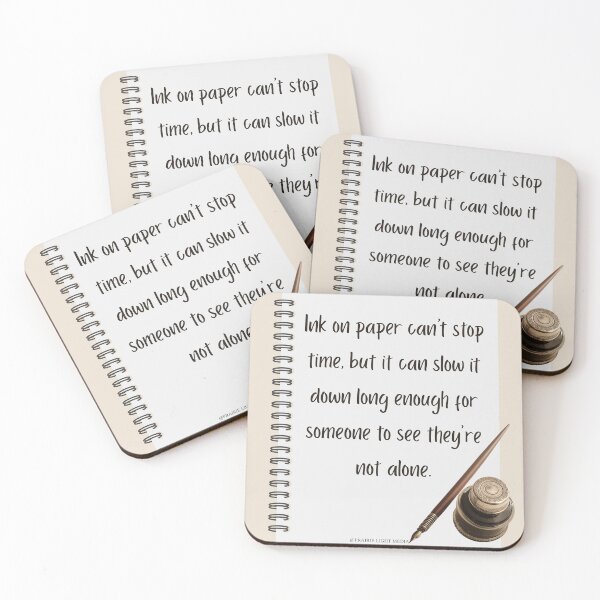 Ink on paper can't stop
time, but it can slow it
down long enough for
they're
Ink on paper can't stop
time, but it can slow it
down long enough for
someone to see they're
not alone.
Ink on paper can't stop
time, but it can slow it
down long enough for
someone to see they're
not alone.
Ink on paper can't stop
time, but it can slow it
down long enough for
someone to see they're
not alone.
LIGHT MEDIA